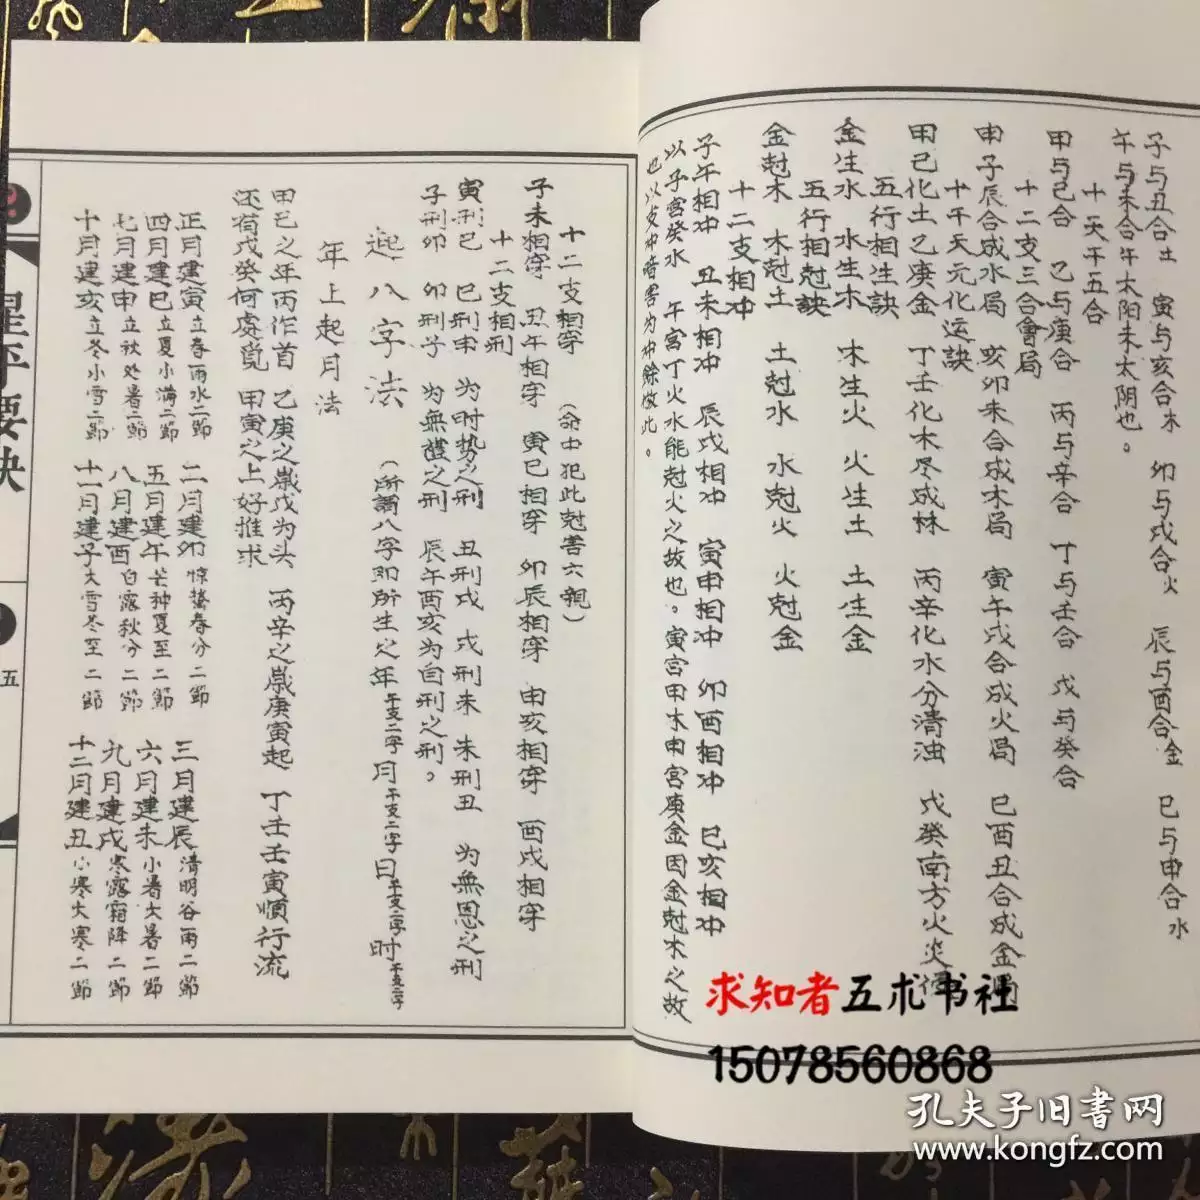 子与丑合土 寅与亥合木 卯与戌合火 辰与酉合金 巳与申合水
午与未合午太阳未太阴也。
十天干五合
甲与己合 乙与庚合 丙与辛合 丁与壬合 戊与癸合
十二支三合會局
申子辰合成水局 亥卯未合成木局 寅午戌合成火局 巳酉丑合成金局
十干天元化运訣
甲己化土乙庚金 丁壬化木尽成林 丙辛化水分清浊 戊癸南方火炎
五行相生訣
金生水 水生木 木生火 火生土 土生金
五行相尅訣
金尅木 木尅土 土尅水 水尅火 火尅金
十二支相冲
子午相冲 丑未相冲 辰戌相冲 寅申相冲 卯酉相冲 巳亥相冲
以子宫癸水 午宫丁火水能尅火之故也。寅宫甲木申宫庚金因金尅木之故
也以支冲暗害为冲餘倣此。
十二支相穿 (命中犯此尅害六親)
子未相穿 丑午相穿 寅巳相穿 卯辰相穿 申亥相穿 酉戌相穿
十二支相刑
寅刑巳 巳刑申 为时势之刑 丑刑戌 戌刑未 未刑丑 为無恩之刑
子刑卯 卯刑子 为無禮之刑 辰午酉亥为自刑之刑。
起八字法 (所謂八字即所生之年干支二字月干支二字日干支二字时干支二字
年上起月法
甲己之年丙作首 乙庚之歲戊为头 丙辛之歲庚寅起 丁壬壬寅順行流
还有戊癸何處覓 甲寅之上好推求
正月建寅立春雨水二節 二月建卯惊蟄春分二節 三月建辰清明谷雨二節
四月建巳立夏小满二節 五月建午芒种夏至二節 六月建未小暑大暑二節
七月建申立秋处暑二節 八月建酉白露秋分二節 九月建戌寒露霜降二節
十月建亥立冬小雪二節 十一月建子大雪冬至二節 十二月建丑小寒大寒二節
星平要訣
五
求知者五术书社
15078560868
孔夫子旧書网
www.kongfz.com